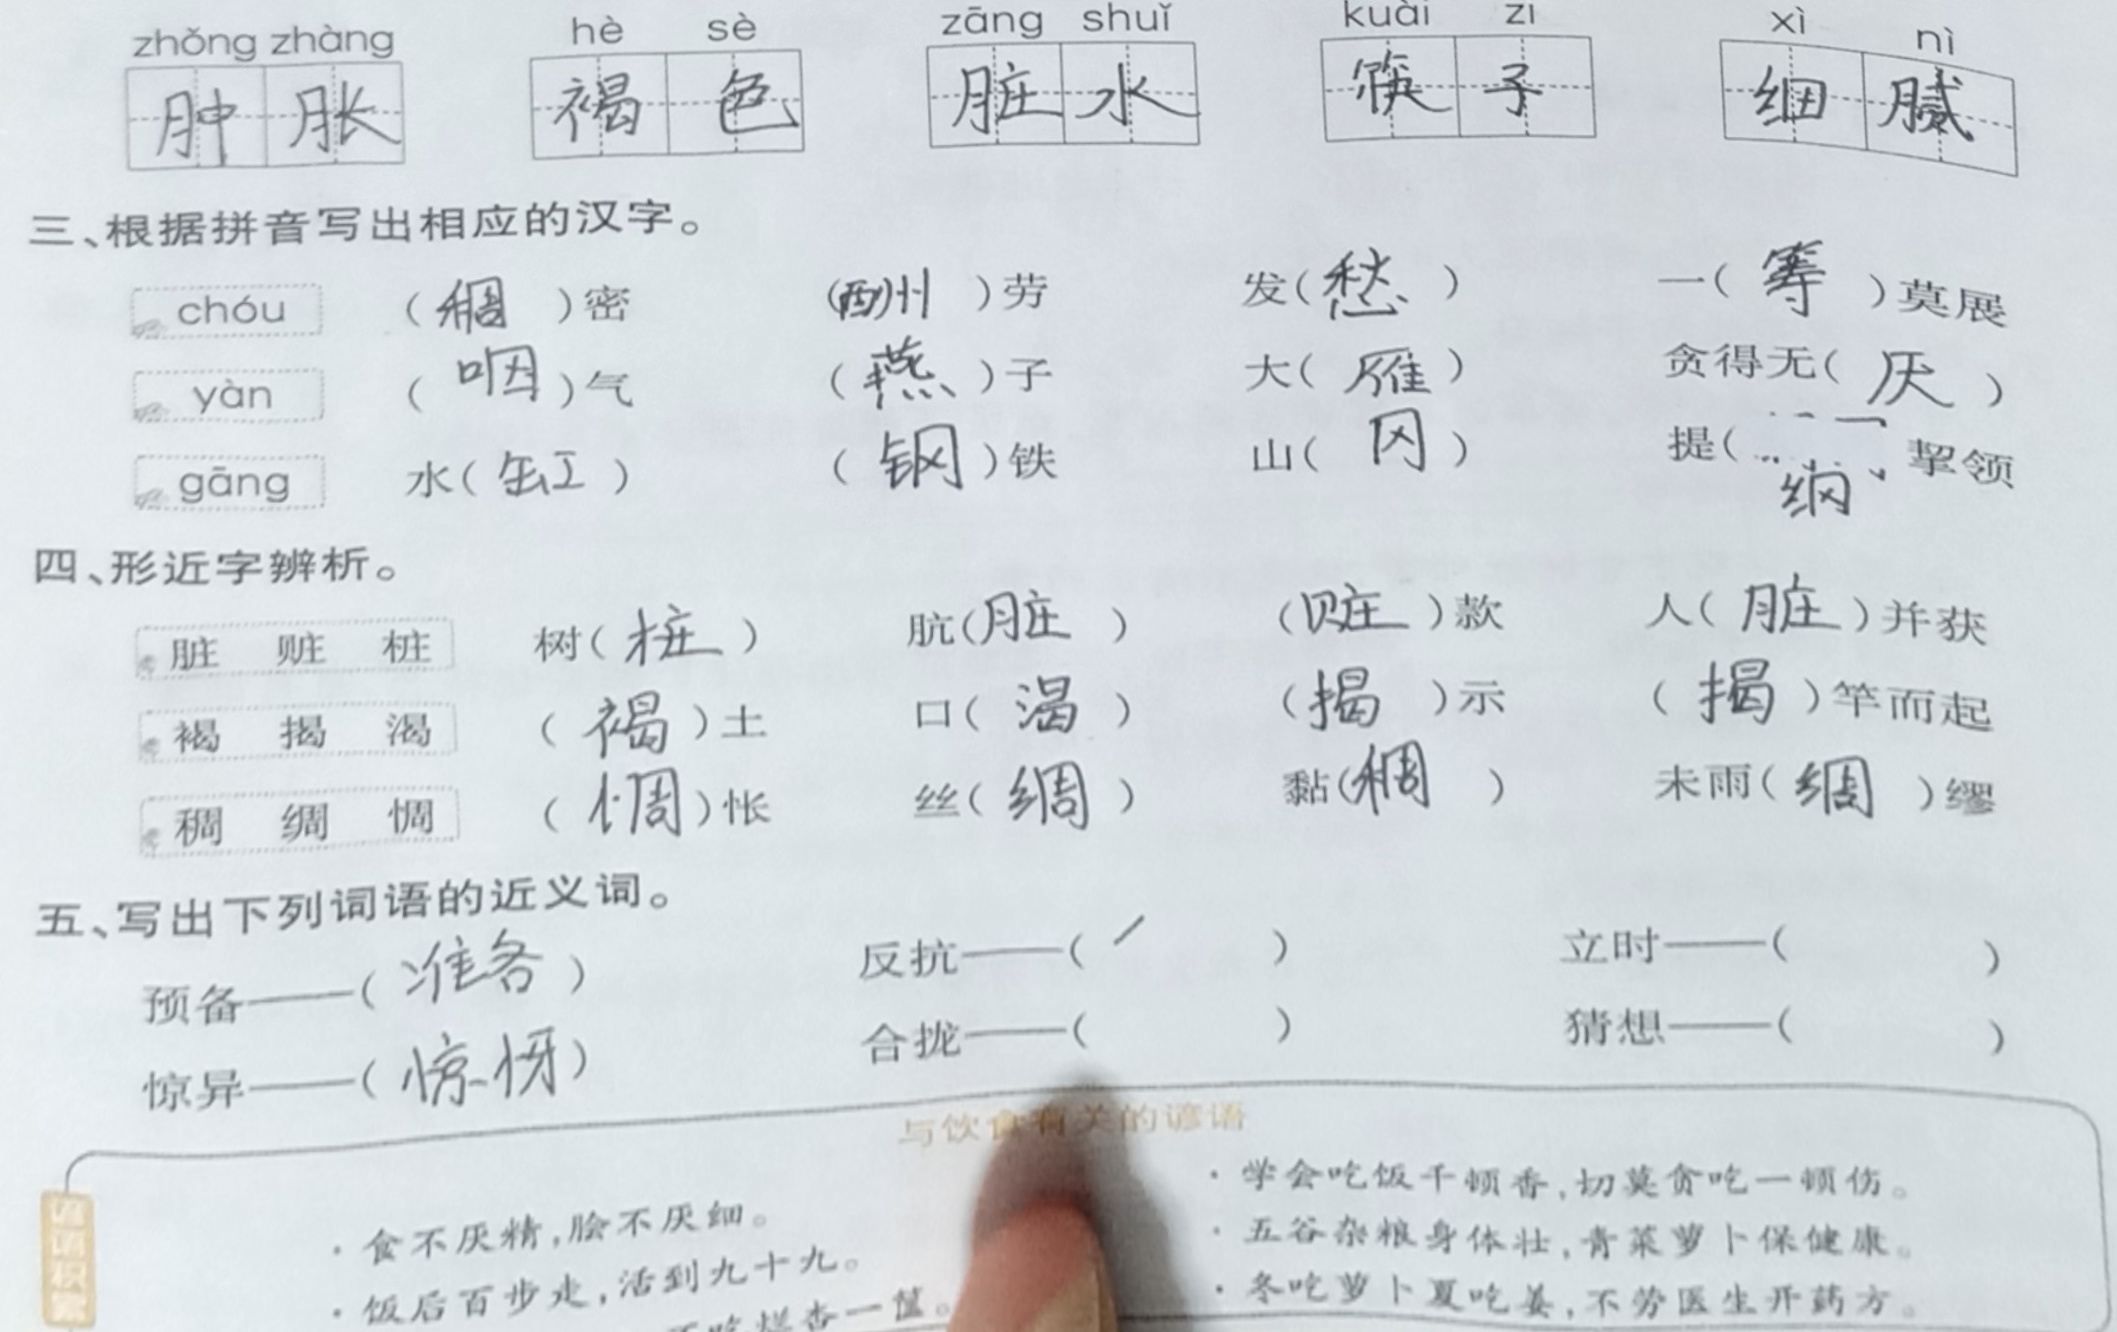 zhǒng zhàng hè sè zāng shuǐ kuài zi xì nì
肿胀 褐色 脏水 筷子 细腻
三、根据拼音写出相应的汉字。
chóu (稠)密 (酬)劳 发(愁) 一(筹)莫展
yàn (咽)气 (燕)子 大(雁) 贪得无(厌)
gāng 水(缸) (钢)铁 山(冈) 提(纲)挈领
四、形近字辨析。
脏 赃 桩 树(桩) 肮(脏) (赃)款 人(脏)并获
褐 揭 渴 (褐)土 口(渴) (揭)示 (揭)竿而起
稠 绸 惆 (惆)怅 丝(绸) 黏(稠) 未雨(绸)缪
五、写出下列词语的近义词。
预备——(准备) 反抗——( ) 立时——( )
惊异——(惊讶) 合拢——( ) 猜想——( )
与饮食有关的谚语
·食不厌精,脍不厌细。
·饭后百步走,活到九十九。
吃烂杏一筐。
·学会吃饭千顿香,切莫贪吃一顿伤。
·五谷杂粮身体壮,青菜萝卜保健康。
·冬吃萝卜夏吃姜,不劳医生开药方。